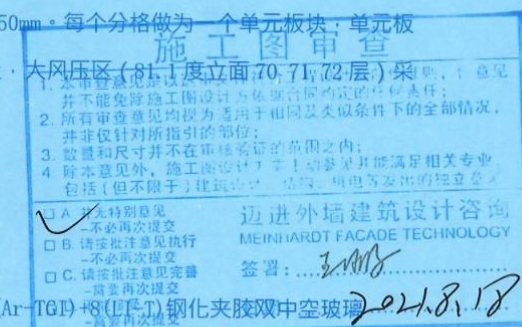 50mm。每个分格做为一个单元板块；单元板
施工图审查
大风压区（81.1度立面70,71,72层）采
1. 本审查意见
并不能免除施工图设计方依据合同约定的任何责任；
2. 所有审查意见均视为适用于相同及类似条件下的全部情况，
并非仅针对所指引的部位；
3. 数量和尺寸并不在审核验证的范围之内；
4. 除本意见外，施工图设计 能满足相关专业，
包括（但不限于）建筑设计、结构、机电等发出的独立意见
□ A. 并无特别意见
–不必再次提交
□ B. 请按批注意见执行
–不必再次提交
□ C. 请按批注意见完善
–需要再次提交
迈进外墙建筑设计咨询
MEINHARDT FACADE TECHNOLOGY
签署：
(Ar-TGI)+8(LI-T)钢化夹胶双中空玻璃
2021.8.18